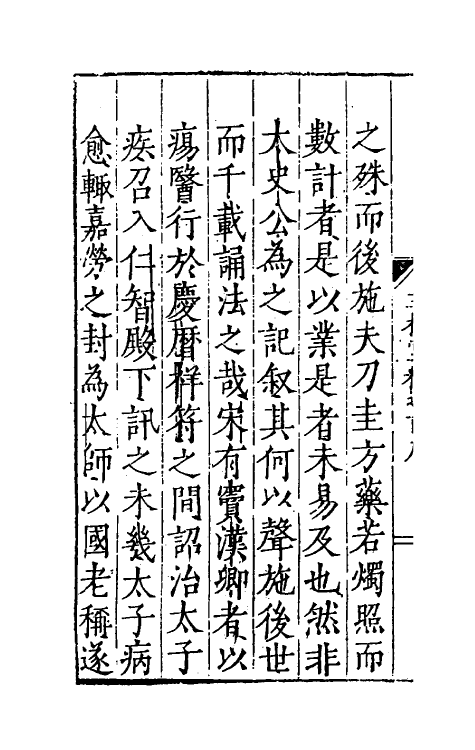 之殊而後施夫刀圭方藥若燭照而
數計者是以業是者未易及也然非
太史公為之記叙其何以聲施後世
而千載誦法之哉宋有竇漢卿者以
瘍醫行於慶曆祥符之間詔治太子
疾召入仁智殿下訊之未幾太子病
愈輙嘉勞之封為太師以國老稱遂